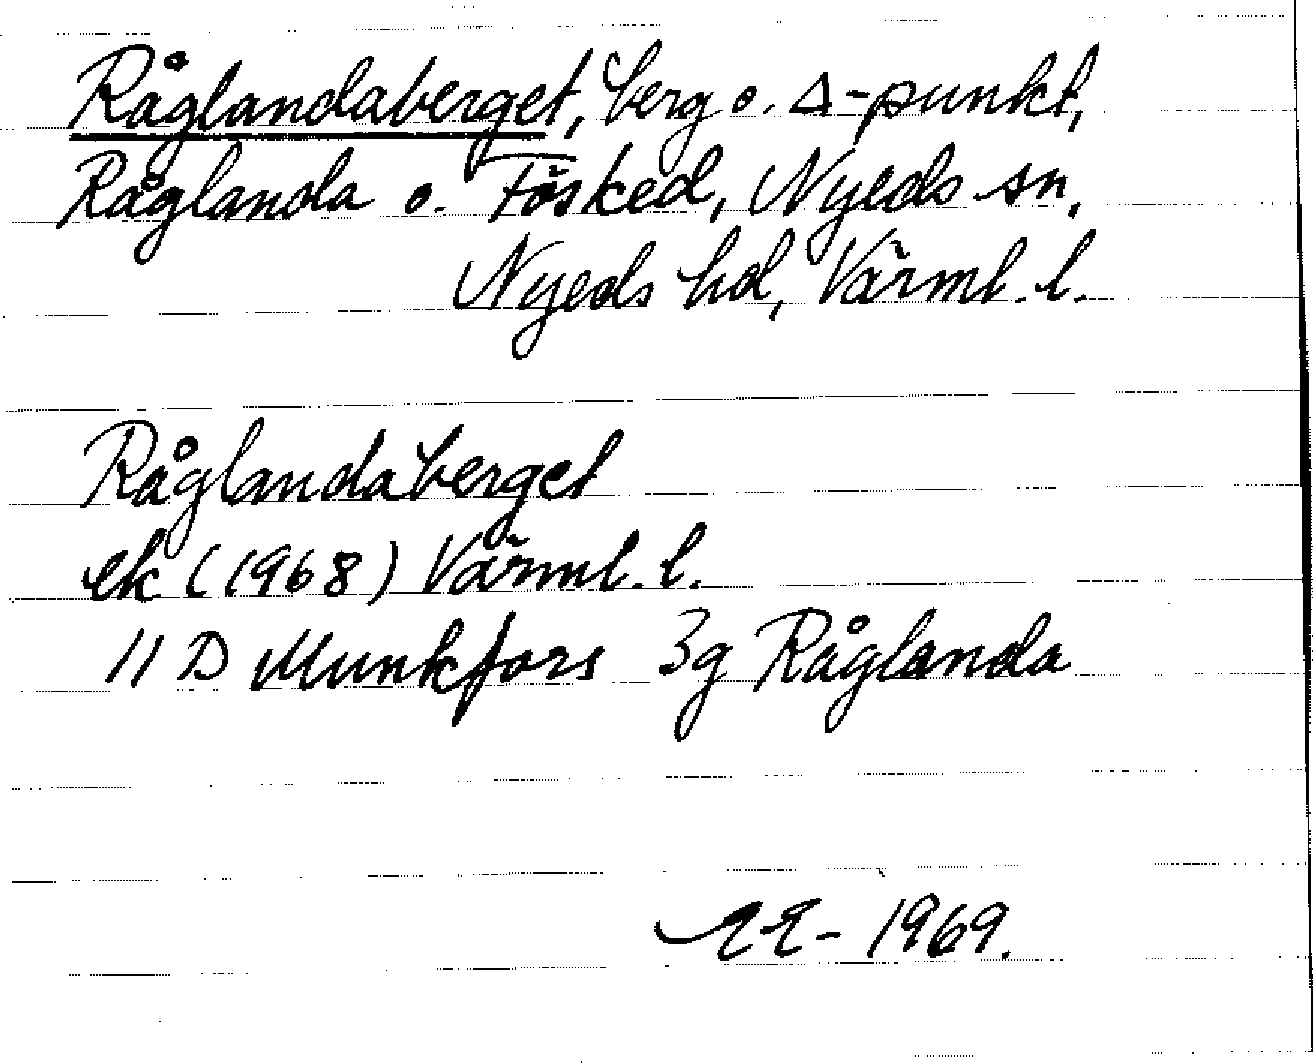 Råglandaberget, berg o. Δ-punkt,
Råglanda o. Fösked, Nyeds sn,
Nyeds hd, Värml. l.
Råglandaberget
ek (1968) Värml. l.
11 D Munkfors 3g Råglanda
1969.